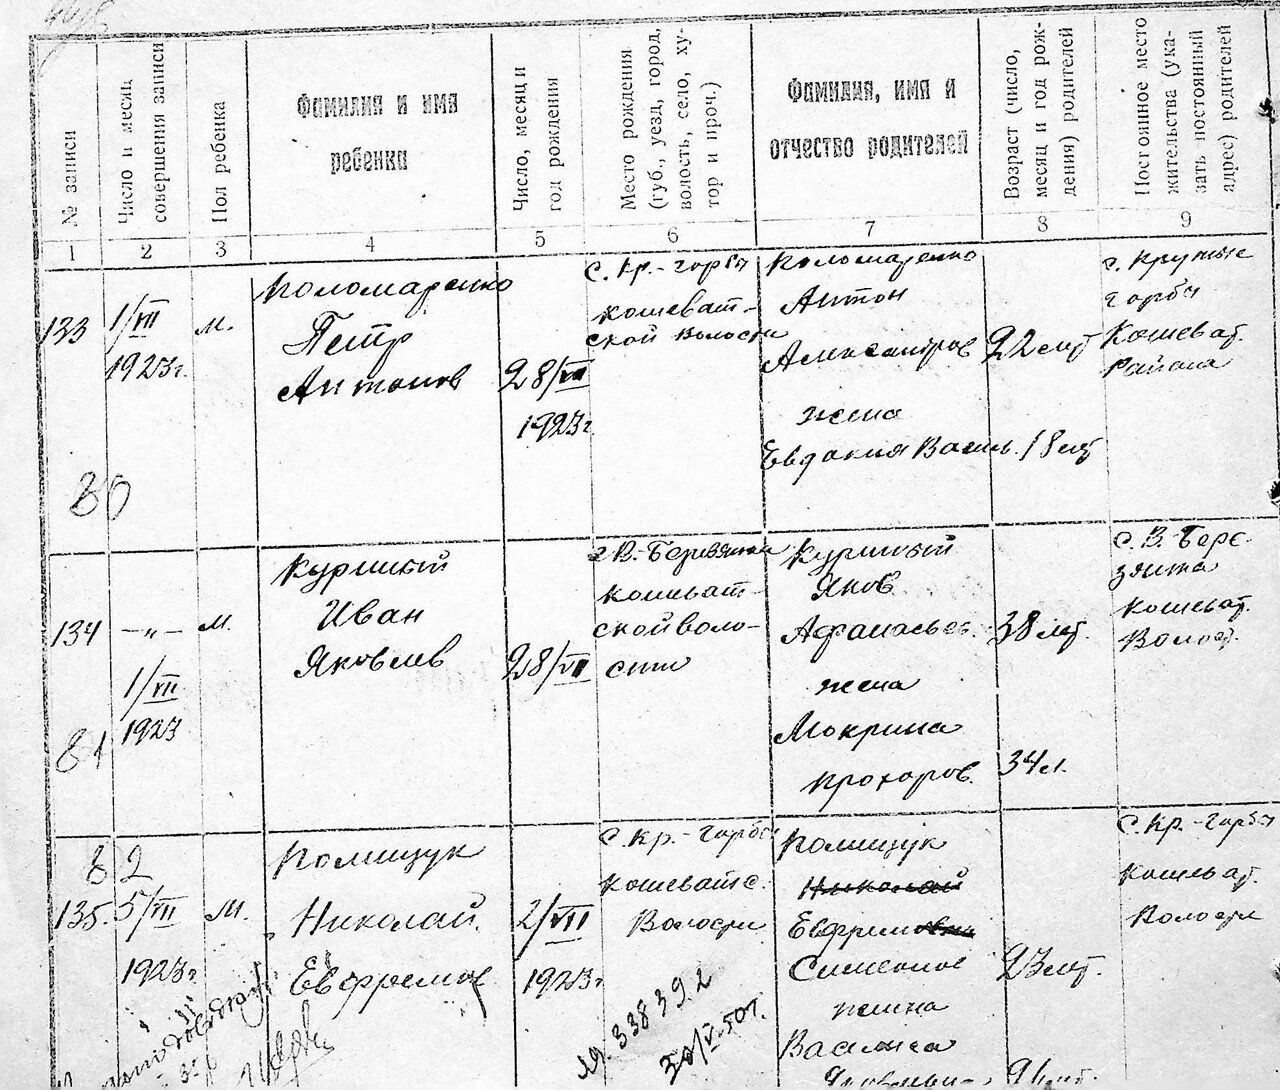 № записи
Число и месяц
совершения записи
Пол ребенка
Фамилия и имя
ребенка
Число, месяц и
год рождения
Место рождения
(губ., уезд, город,
волость, село, ху-
тор и проч.)
Фамилия, имя и
отчество родителей
Возраст (число,
месяц и год рож-
дения) родителей
Постоянное место
жительства (ука-
зать постоянный
адрес) родителей
1 2 3 4 5 6 7 8 9
133
1/VII
1923г.
м.
Поломаренко
Петр
Антонов
28/VI
1923г
С. Кр.-Горбы
Кошеват-
ской Волости
Поломаренко
Антон
Александров 22 лет
жена
Евдокия Василь. 18 лет
с. Крутые
Горбы
Кошеват.
Района
80
134
-„-
1/VII
1923
м.
Куришый
Иван
Яковлев
28/VI
с В.-Березянка
Кошеват-
ской воло-
сти
Куришый
Яков
Афанасьев. 38 лет.
жена
Мокрина
Прохоров. 34 л.
С. В. Бере-
зянка
Кошеват.
Волост.
81
82
135.
5/VII
1923г
м.
Полищук
Николай
Евфремов
2/VII
1923г
С. Кр.-Горбы
Кошеватс.
Волости
Полищук
Николай
Ефрем
Симонов 23 лет.
жена
Василиса
Яковлев
С. Кр.-Горбы
Кошеват.
Волости
338392
30/V-50г.